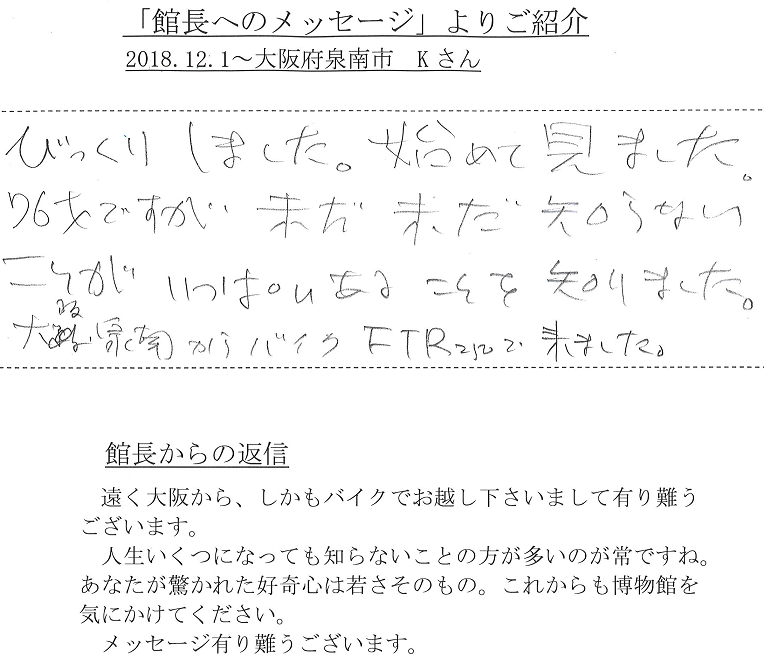 「館長へのメッセージ」よりご紹介
2018.12.1～大阪府泉南市　Kさん
びっくりしました。始めて見ました。
76才ですがい未だ未だ知らない
ことがいっぱいあることを知りました。
大阪泉南からバイクFTR250で来ました。
館長からの返信
遠く大阪から、しかもバイクでお越し下さいまして有り難う
ございます。
人生いくつになっても知らないことの方が多いのが常ですね。
あなたが驚かれた好奇心は若さそのもの。これからも博物館を
気にかけてください。
メッセージ有り難うございます。